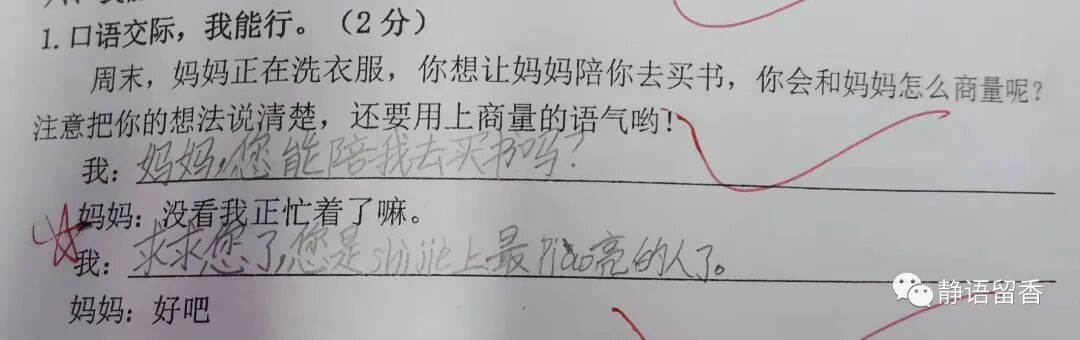 1. 口语交际，我能行。（2分）
周末，妈妈正在洗衣服，你想让妈妈陪你去买书，你会和妈妈怎么商量呢？
注意把你的想法说清楚，还要用上商量的语气哟！
我：妈妈，您能陪我去买书吗？
妈妈：没看我正忙着了嘛。
我：求求您了，您是shìjiè上最piào亮的人了。
妈妈：好吧
静语留香